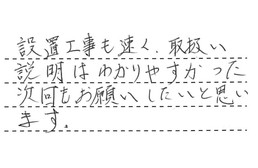 設置工事も速く、取扱い
説明はわかりやすかった
次回もお願いしたいと思い
ます。